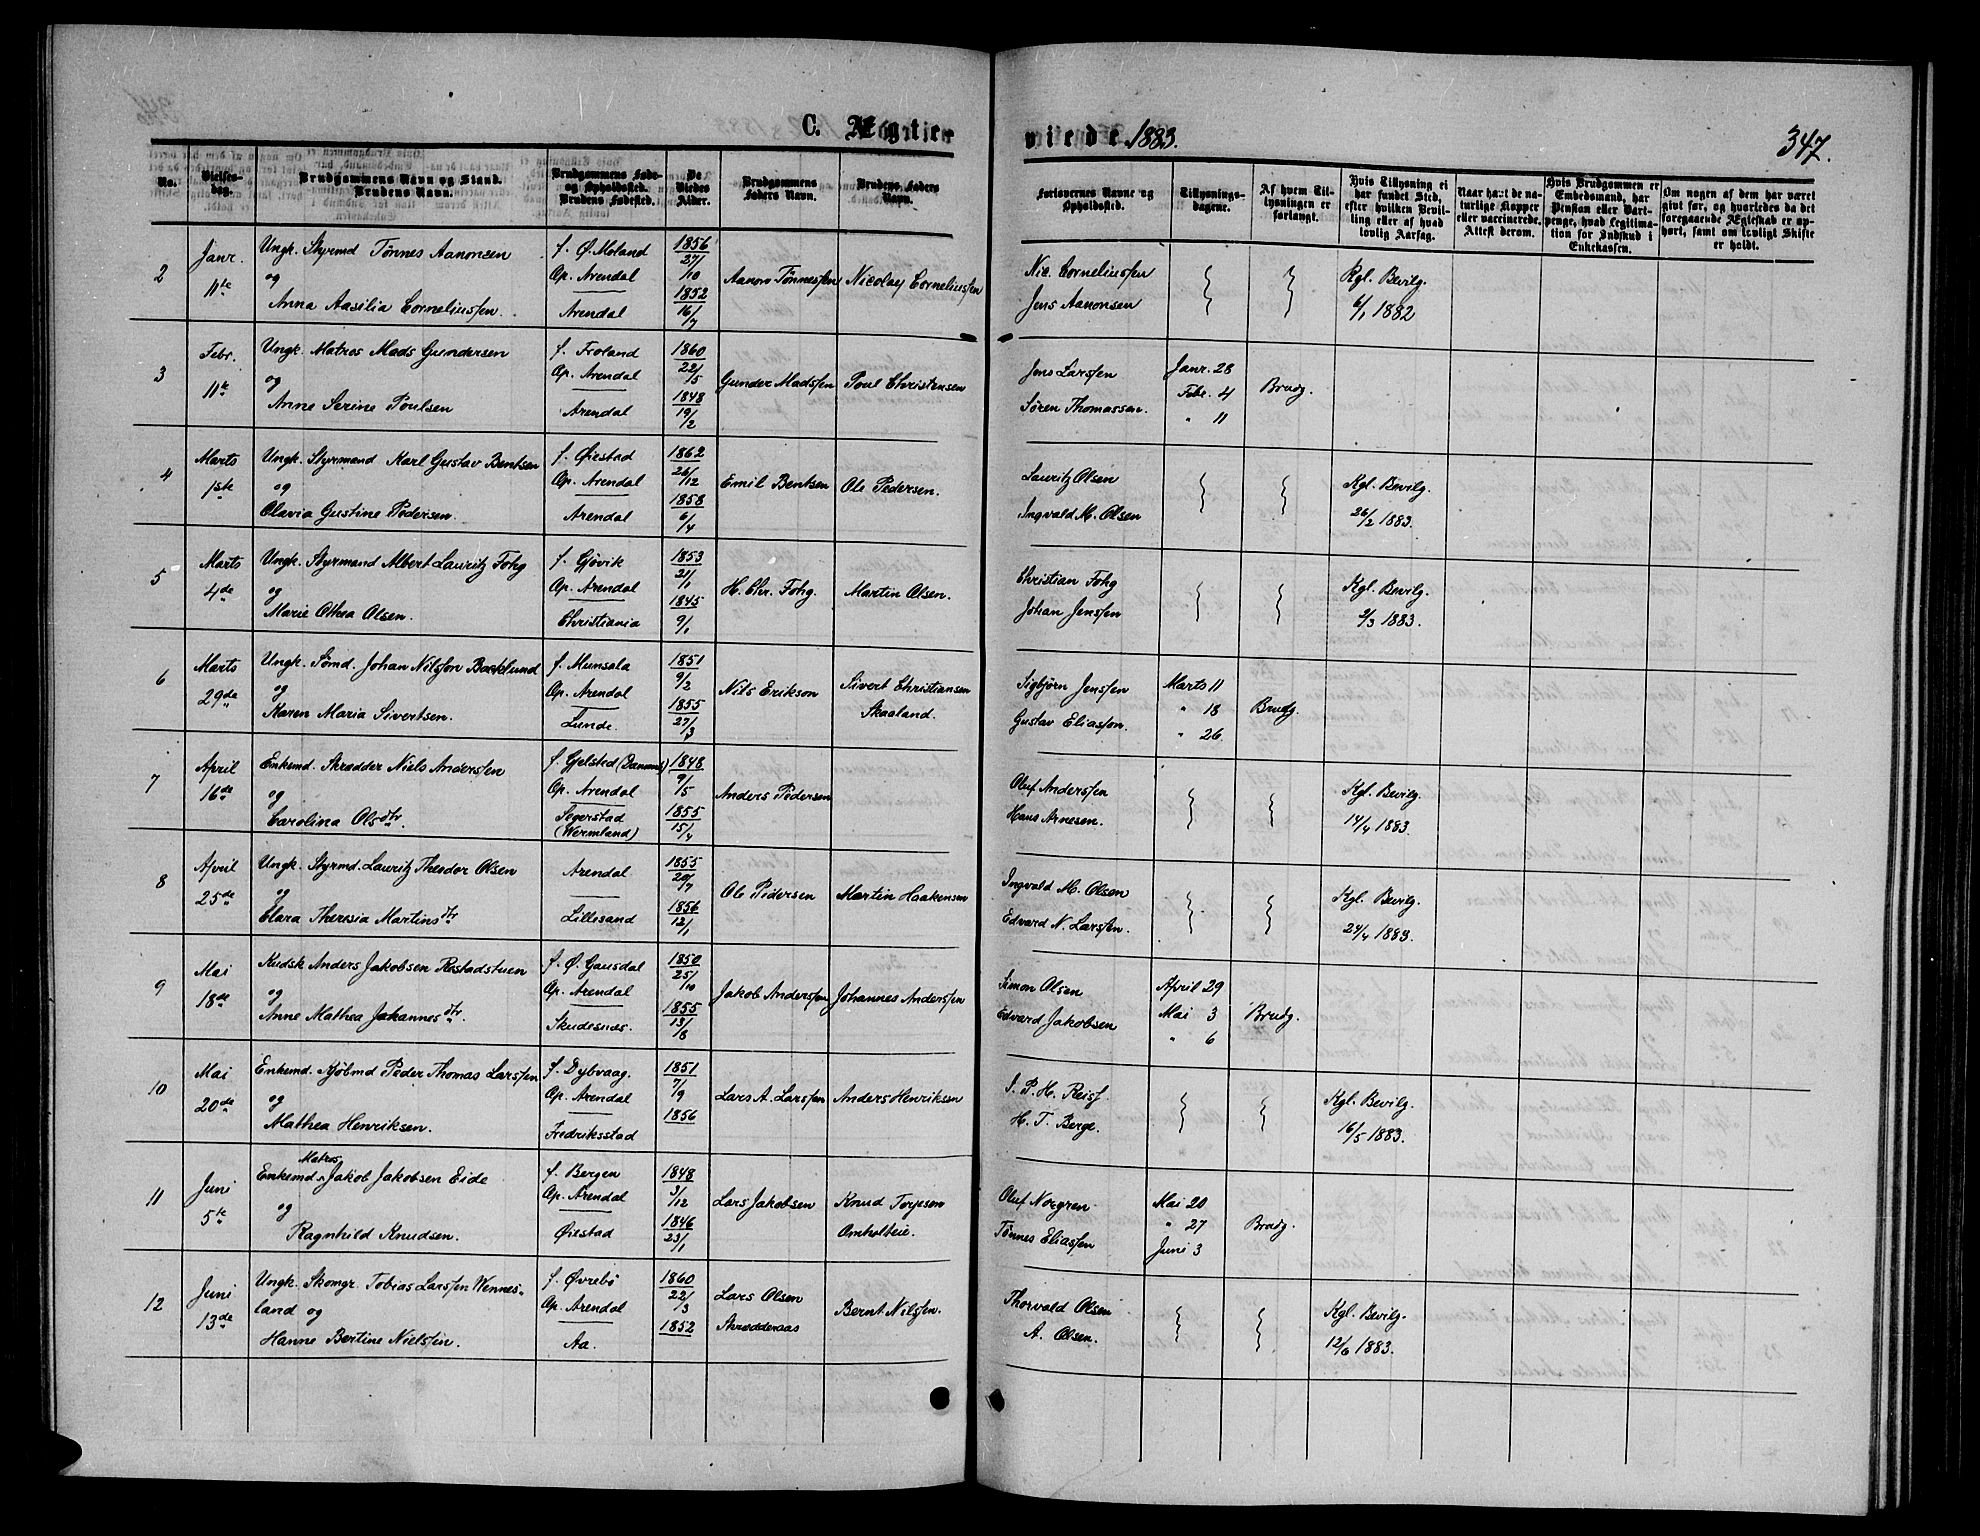 C. Ægteviede 1883. 347.
No. | Vielsesdag. | Brudgommens Navn og Stand. Brudens Navn. | Brudgommens Føde- og Opholdssted. Brudens Fødested. | De Viedes Alder. | Brudgommens Faders Navn. | Brudens Faders Navn. | Forlovernes Navne og Opholdssted. | Tillysningsdagene. | Af hvem Tillysningen er forlangt. | Hvis Tillysning ei har fundet Sted, efter hvilken Bevilling eller af hvad lovlig Aarsag. | Naar havt de naturlige Kopper eller vaccinerede. Attest derom. | Hvis Brudgommen er Embedsmand, har Pension eller Vartpenge, hvad Legitimation for Indskud i Enkekassen. | Om nogen af dem har været givt før, og hvorledes da det foregaaende Ægteskab er ophørt, samt om lovligt Skifte er holdt.
2 | Janr. 11te | Ungk. Styrmd Tönnes Aanonsen og Anna Aasilia Corneliussen. | f. Ø. Moland Op. Arendal Arendal | 1856 27/10 1852 16/7 | Aanon Tönnessen | Nicolay Corneliussen | Nic. Corneliussen Jens Aanonsen | Kgl. Bevilg. 6/1 1882
3 | Febr. 11te | Ungk. Matros Mads Gundersen og Anne Serine Poulsen | f. Froland Op. Arendal Arendal | 1860 22/5 1848 19/2 | Gunder Madssen | Poul Christensen | Jens Larssen Sören Thomassen. | Janr. 28 Febr. 4 " 11 | Brudg.
4 | Marts 1ste | Ungk. Styrmand Karl Gustav Bentsen og Olavia Gustine Pedersen. | f. Øiestad Op. Arendal Arendal | 1862 26/12 1858 6/4 | Emil Bentsen | Ole Pedersen. | Lauritz Olsen Ingvald M. Olsen | Kgl. Bevilg. 26/2 1883.
5 | Marts 4de | Ungk. Styrmand Albert Lauritz Fohg og Marie Othea Olsen. | f. Gjövik Op. Arendal Christiania | 1853 21/1 1845 9/1 | H. Chr. Fohg. | Martin Olsen. | Christian Fohg Johan Jenssen | Kgl. Bevilg. 2/3 1883.
6 | Marts 29de | Ungk. Sömd. Johan Nilsson Backlund og Karen Maria Sivertsen. | f. Munsala Op. Arendal Lunde. | 1851 9/2 1855 27/3 | Nils Erikson | Sivert Christiansen Skaaland. | Sigbjörn Jenssen Gustav Eliasson. | Marts 11 " 18 " 26. | Brudg.
7 | April 16de | Enkemd. Skrædder Niels Anderssen og Carolina Olsdtr. | f. Gjelsted (Danmark) Op. Arendal Segerstad (Wermland) | 1848 9/5 1855 15/4 | Anders Pedersen | Oluf Anderssen Hans Arnesen. | Kgl. Bevilg. 14/4 1883.
8 | April 25de | Ungk. Styrmd. Lauritz Theodor Olsen og Clara Theresia Martinsdtr | Arendal Lillesand | 1855 20/7 1856 12/1 | Ole Pedersen | Martin Haakensen | Ingvald M. Olsen Edvard N. Larssen. | Kgl. Bevilg. 24/4 1883.
9 | Mai 18de | Kudsk Anders Jakobsen Rostadstuen og Anne Mathea Johannesdtr. | f. Ø. Gausdal Op. Arendal Skudesnæs. | 1850 25/10 1855 13/8 | Jakob Anderssen | Johannes Anderssen | Simon Olsen Edvard Jakobsen | April 29 Mai 3 " 6 | Brudg.
10 | Mai 20de | Enkemd. Kjöbmd Peder Thomas Larssen og Mathea Henriksen. | f. Dybvaag. Op. Arendal Fredriksstad | 1851 7/9 1856 | Lars A. Larssen | Anders Henriksen | J. P. H. Reiss. H. T. Berge. | Kgl. Bevilg. 16/5 1883.
11 | Juni 5te | Enkemd. Matros Jakob Jakobsen Eide og Ragnhild Knudsen. | f. Bergen Op. Arendal Øiestad | 1848 3/12 1846 23/1 | Lars Jakobsen | Knud Torjesen Omholteie. | Oluf Norgren Tönnes Eliassen | Mai 20 " 27 Juni 3 | Brudg.
12 | Juni 13de | Ungk. Skomgr. Tobias Larssen Wennesland og Hanne Bertine Nielssen. | f. Øvrebö Op. Arendal Aa. | 1860 22/3 1852 | Lars Olsen Skrædderaas | Bernt Nilssen. | Thorvald Olsen A. Olsen. | Kgl. Bevilg. 12/6 1883.